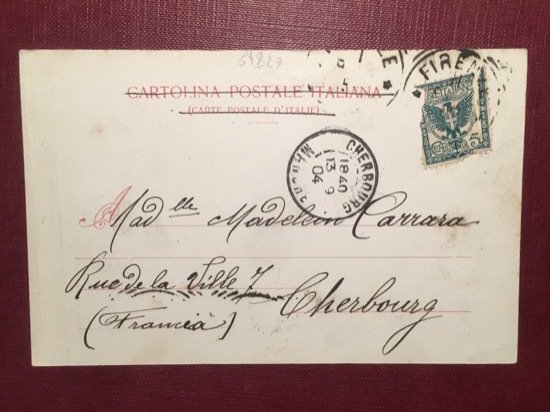 61827
CARTOLINA POSTALE ITALIANA
(CARTE POSTALE D'ITALIE)
FIRENZE
5
CHERBOURG
1840
13 9
04
MANCHE
A
Madlle Madeleine Carrara
Rue de la Ville 7
Cherbourg
(Francia)